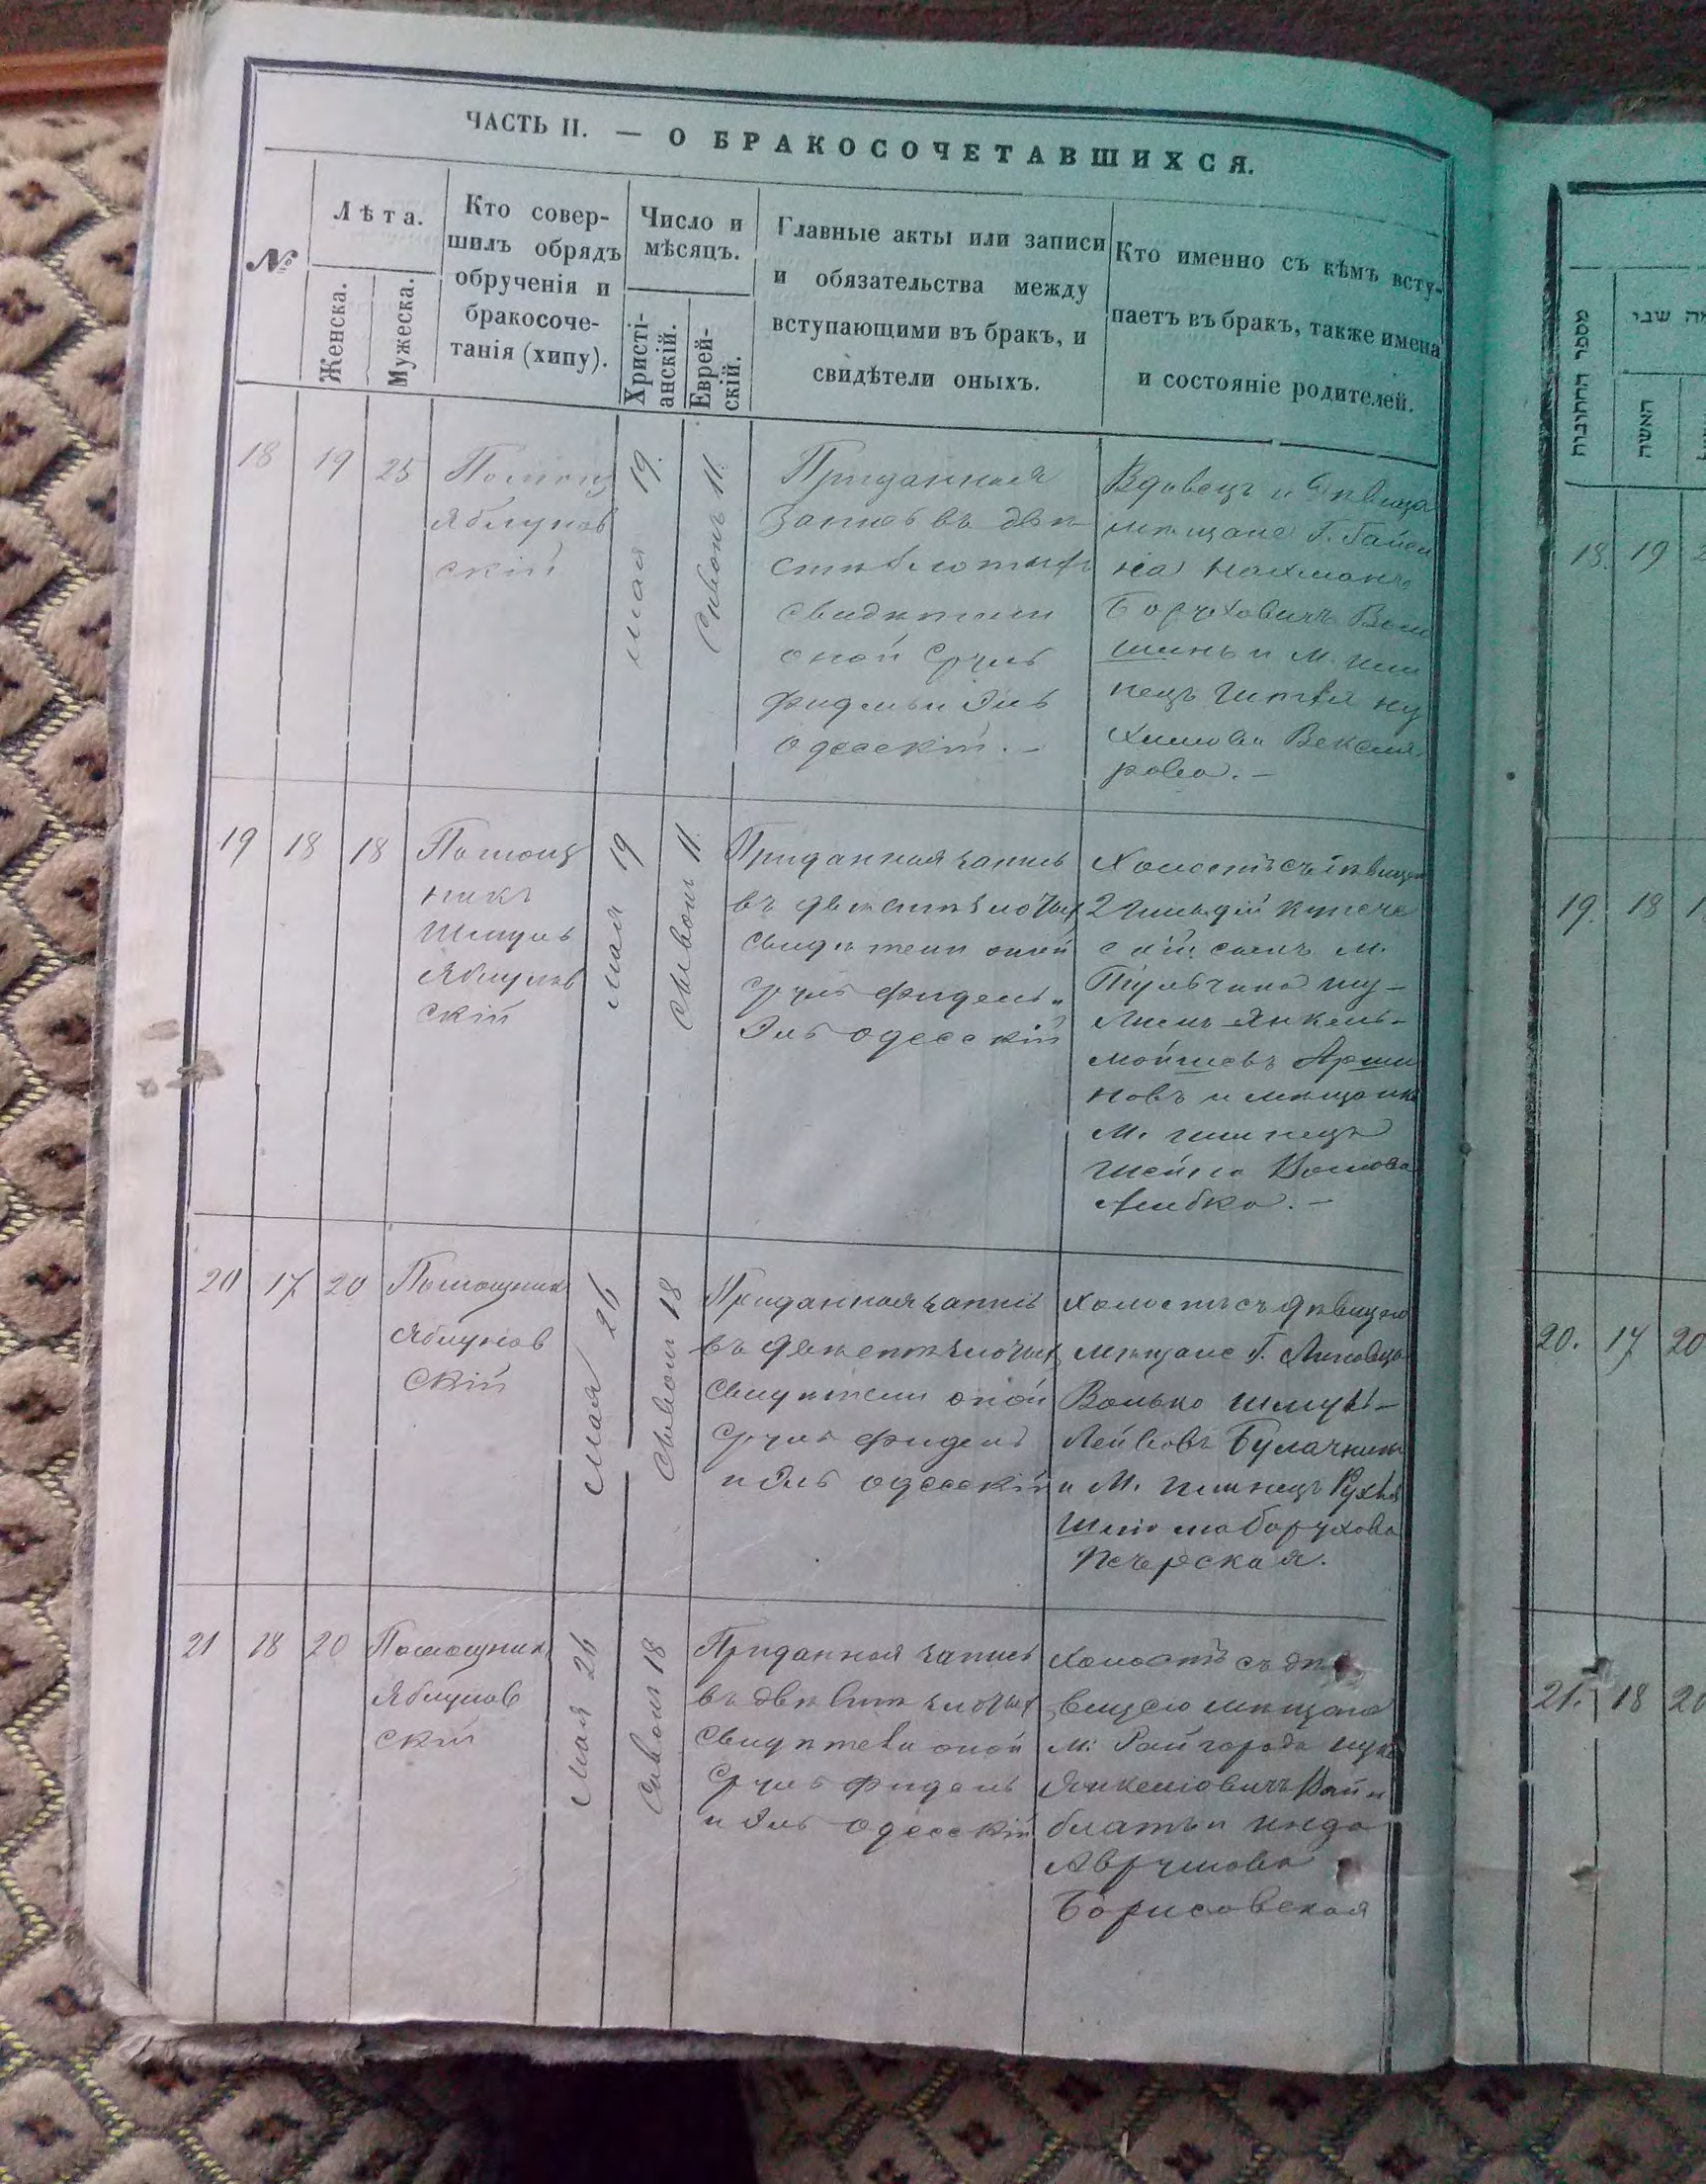 ЧАСТЬ II. — О БРАКОСОЧЕТАВШИХСЯ.
№
Лѣта.
Женска.
Мужеска.
Кто совер-
шилъ обрядъ
обрученія и
бракосоче-
танія (хипу).
Число и
мѣсяцъ.
Христі-
анскій.
Еврей-
скій.
Главные акты или записи
и обязательства между
вступающими въ бракъ, и
свидѣтели оныхъ.
Кто именно съ кѣмъ всту-
паетъ въ бракъ, также имена
и состояніе родителей.
18
19
25
Помощ
Яблунов
скій
Мая 19.
Сивонъ 11.
Приданная
запись въ двѣ
сти злотых
свидѣтели
оной Сруль
Фидель и Эль
Одесскій. —
Вдовецъ и дѣвица
мѣщане Г. Гайси
на Нахманъ
Боруховичъ Воло
шинъ и М.
нецъ
Химова Векслѣ
рова. —
19
18
18
Помощ
никъ
Шмуль
Яблунов
скій
Мая 19
Сивонъ 11.
Приданная запись
въ двѣсти злотых
свидѣтели оной
Сруль Фидель и
Эль Одесскій
Холостъ съ дѣвицею
2 гильдіи купече
скій сынъ М.
Тульчина Шу-
лимъ Янкель-
Мойшевъ Арши
новъ и мѣщанка
М.
Шейна
20
17
20
Помощник
Яблунов
скій
Мая 26
Сивонъ 18
Приданная запись
въ двѣсти злотых
свидѣтели оной
Сруль Фидель
и Эль Одесскій
Холостъ съ дѣвицею
мѣщане Г. Липовца
Волько Шмуль-
Лейбовъ Булачник
и М. Рухля
Шлiома Борухова
Печерская.
21
18
20
Помощник
Яблунов
скій
Мая 26
Сивонъ 18
Приданная запись
въ двѣсти злотых
свидѣтели оной
Сруль Фидель
и Эль Одесскій
Холостъ съ дѣ
вицею мѣщане
М. Райгорода Ицко
Янкеліовичъ Вайн
блатъ и Хинда
Аврумова
Борисовская
מספר החתונות
האשה
18.
19
19.
18
1
20.
17
20
21.
18
20